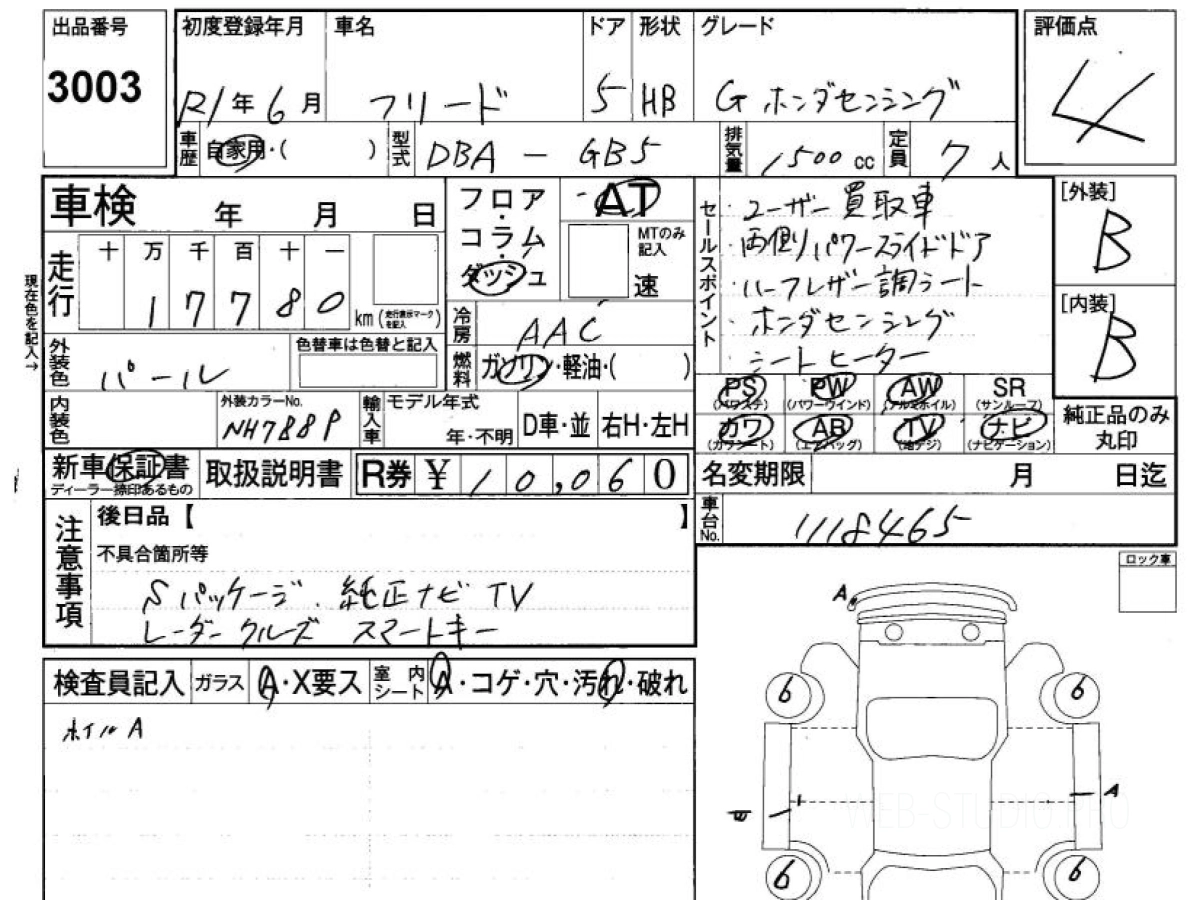 出品番号
3003
初度登録年月
R1年6月
車名
フリード
ドア
5
形状
HB
グレード
G ホンダセンシング
評価点
4
車歴 自家用・( )
型式 DBA - GB5
排気量 1500 cc
定員 7人
車検 年 月 日
フロア・コラム・ダッシュ
AT
MTのみ記入
速
セールスポイント
・ユーザー買取車
・両側パワースライドドア
・ハーフレザー調シート
・ホンダセンシング
・シートヒーター
[外装]
B
[内装]
B
現在色を記入→
走行
十 万 千 百 十 一
1 7 7 8 0
km (走行表示マークを記入)
冷房 AAC
外装色 パール
色替車は色替と記入
燃料 ガソリン・軽油・( )
PS (パワステ)
PW (パワーウインド)
AW (アルミホイル)
SR (サンルーフ)
カワ (カワシート)
AB (エアバッグ)
TV (地デジ)
ナビ (ナビゲーション)
純正品のみ丸印
内装色
外装カラーNo.
NH788P
輸入車
モデル年式
年・不明
D車・並
右H・左H
新車保証書
ディーラー捺印あるもの
取扱説明書
R券 ¥ 10,060
名変期限 月 日迄
車台No. 1118465
注意事項
後日品【 】
不具合箇所等
Sパッケージ、純正ナビ TV
レーダークルーズ スマートキー
ロック車
A
検査員記入
ガラス A・X要ス
室内シート A・コゲ・穴・汚れ・破れ
ホイルA
6 6
A
WEB-STUDIO.PRO
6 6